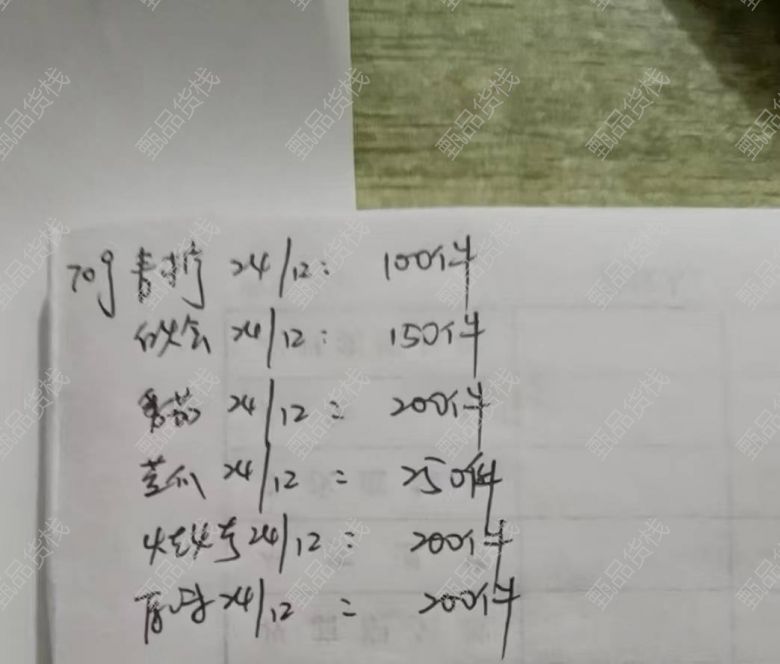 70g 青柠 24/12: 100件
烧烤 24/12: 150件
番茄 24/12: 200件
黄瓜 24/12: 250件
24/12: 200件
原味 24/12: 200件
甄品货栈